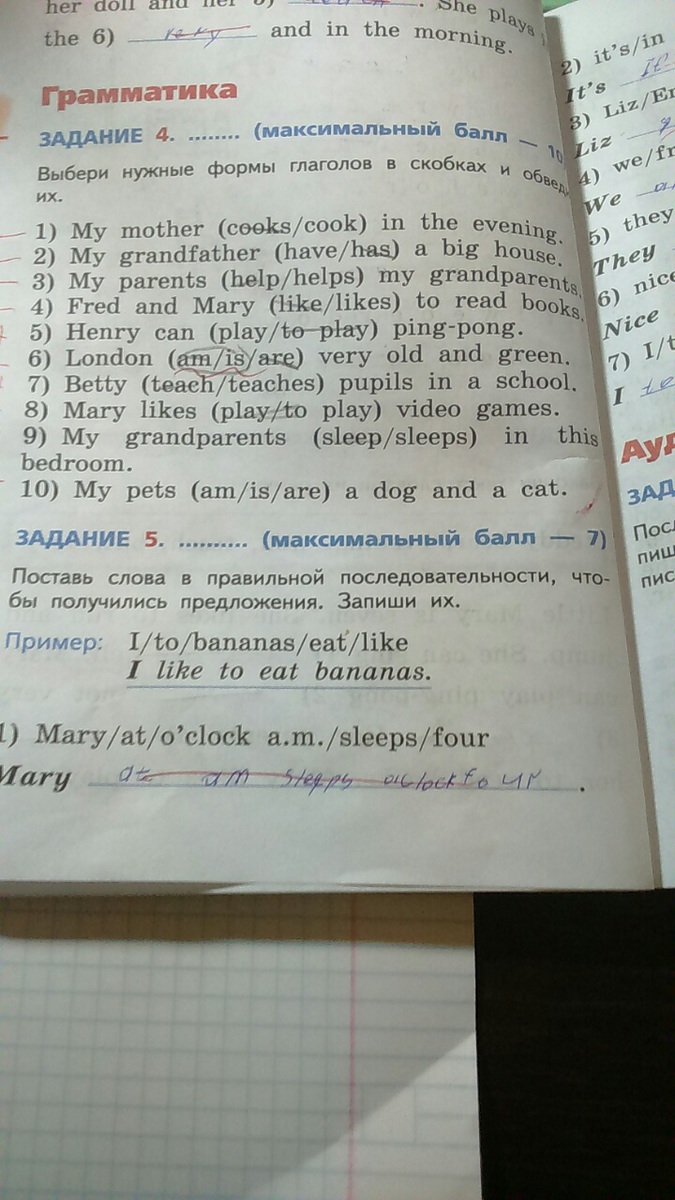 her doll and her 5) . She plays
the 6) and in the morning.
Грамматика
ЗАДАНИЕ 4. ........ (максимальный балл — 10
Выбери нужные формы глаголов в скобках и обвед
их.
1) My mother (cooks/cook) in the evening.
2) My grandfather (have/has) a big house.
3) My parents (help/helps) my grandparents.
4) Fred and Mary (like/likes) to read books.
5) Henry can (play/to play) ping-pong.
6) London (am/is/are) very old and green.
7) Betty (teach/teaches) pupils in a school.
8) Mary likes (play/to play) video games.
9) My grandparents (sleep/sleeps) in this
bedroom.
10) My pets (am/is/are) a dog and a cat.
ЗАДАНИЕ 5. .......... (максимальный балл — 7)
Поставь слова в правильной последовательности, что-
бы получились предложения. Запиши их.
Пример: I/to/bananas/eat/like
I like to eat bananas.
1) Mary/at/o'clock a.m./sleeps/four
Mary at am sleeps oclock four .
2) it's/in
It's
3) Liz/En
Liz
4) we/fr
We
5) they
They
6) nice
Nice
7) I/t
I
Ауд
ЗАД
Посл
пиш
пис